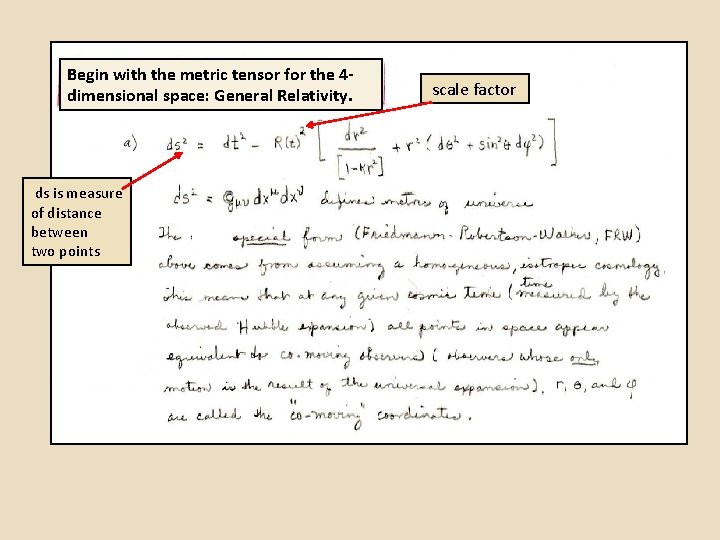 Begin with the metric tensor for the 4-
dimensional space: General Relativity.
scale factor
a) ds² = dt² - R(t)² [ dr² / [1-Kr²] + r² (dθ² + sin²θ dφ²) ]
ds is measure
of distance
between
two points
ds² = gμν dx^μ dx^ν defines metres of universe
The special form (Friedmann-Robertson-Walker, FRW)
above comes from assuming a homogeneous, isotropic cosmology.
time
This means that at any given cosmic time (measured by the
observed Hubble expansion) all points in space appear
equivalent to co-moving observers (observers whose only
motion is the result of the universal expansion), r, θ, and φ
are called the "co-moving" coordinates.